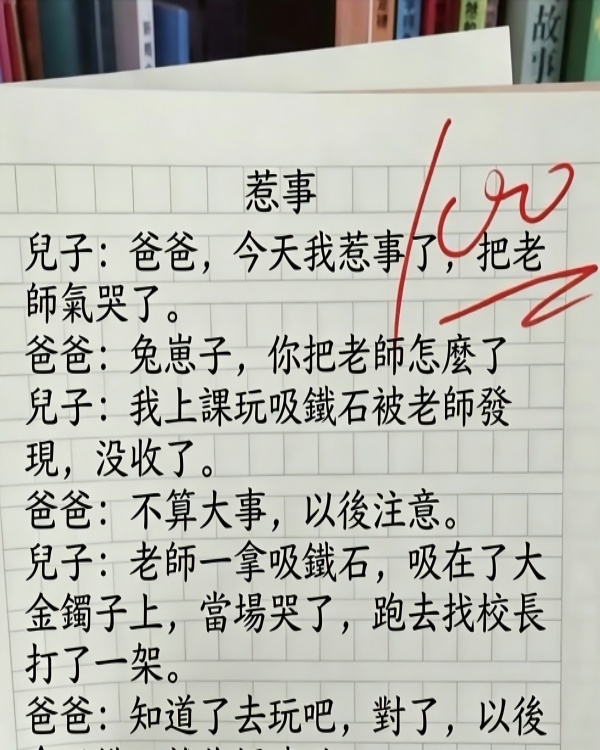 故事
惹事
100
兒子：爸爸，今天我惹事了，把老
師氣哭了。
爸爸：兔崽子，你把老師怎麼了
兒子：我上課玩吸鐵石被老師發
現，没收了。
爸爸：不算大事，以後注意。
兒子：老師一拿吸鐵石，吸在了大
金鐲子上，當場哭了，跑去找校長
打了一架。
爸爸：知道了去玩吧，對了，以後